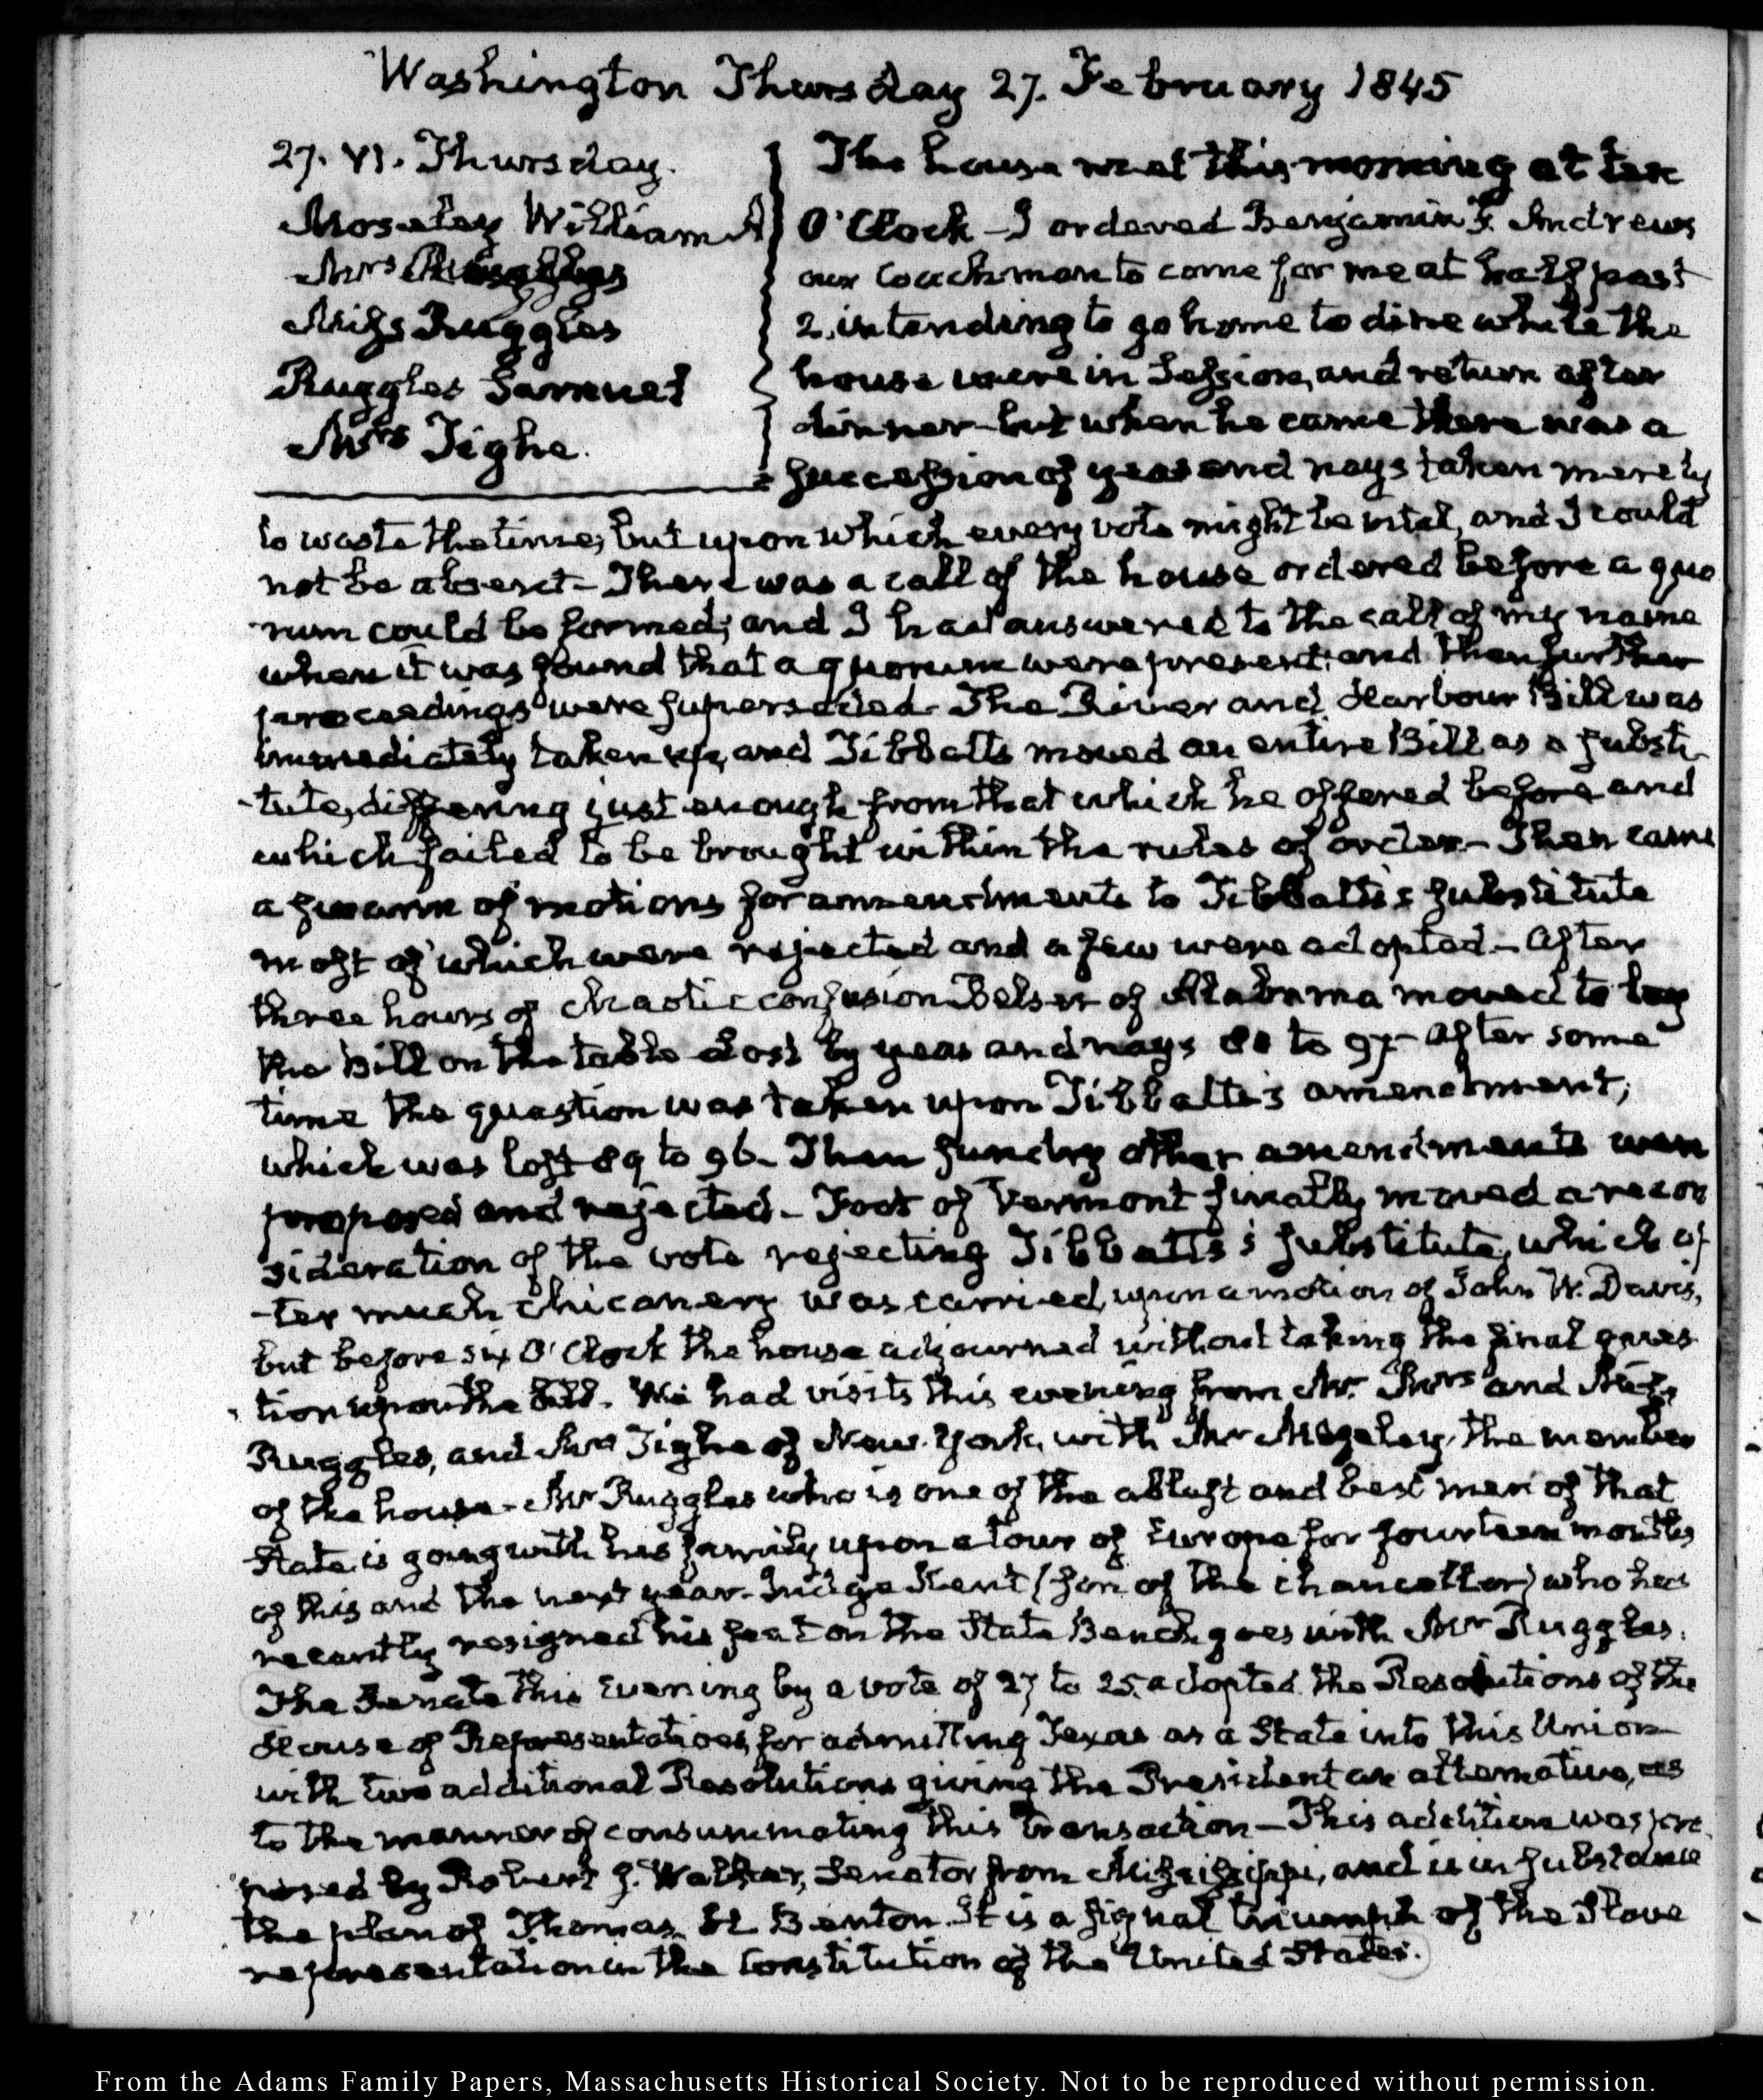 Washington Thursday 27. February 1845
27. VI. Thursday.
Moseley William A
Mrs Ruggles
Miss Ruggles
Ruggles Samuel
Mrs Tighe.
The house met this morning at ten
O'Clock – I ordered Benjamin F. Andrews
our Coachman to come for me at half past
2. intending to go home to dine while the
house were in Session, and return after
dinner – but when he came there was a
succession of yeas and nays taken merely
to waste the time, but upon which every vote might be vital, and I could
not be absent – There was a call of the house ordered before a quo
rum could be formed; and I had answered to the call of my name
when it was found that a quorum were present; and then further
proceedings were superseded – The River and Harbour Bill was
immediately taken up, and Tibbatts moved an entire Bill as a substi-
-tute, differing just enough from that which he offered before and
which failed to be brought within the rules of order – Then came
a swarm of motions for amendments to Tibbatts's substitute
most of which were rejected and a few were adopted – After
three hours of chaotic confusion Belser of Alabama moved to lay
the Bill on the table lost by yeas and nays to 97 – After some
time the question was taken upon Tibbatts's amendment,
which was lost 89 to 96 – Then sundry other amendments were
proposed and rejected – Foot of Vermont finally moved a recon
sideration of the vote rejecting Tibbatts's substitute, which af
-ter much chicanery was carried, upon a motion of John W. Davis,
but before six O'Clock the house adjourned without taking the final ques
tion upon the Bill. We had visits this evening from Mr. Mrs and Miss
Ruggles, and Mrs Tighe of New-York, with Mr Moseley, the member
of the house – Mr Ruggles who is one of the ablest and best men of that
State is going with his family upon a tour of Europe for fourteen months
of this and the next year – Judge Kent (son of the chancellor) who has
recently resigned his seat on the State Bench goes with Mr Ruggles.
The Senate this evening by a vote of 27 to 25. adopted the Resolutions of the
House of Representatives, for admitting Texas as a State into this Union
with two additional Resolutions giving the President an alternative, as
to the manner of consummating this transaction – This addition was pro
posed by Robert J. Walker, Senator from Missisippi, and is in substance
the plan of Thomas H. Benton. It is a signal triumph of the Slave
representation in the Constitution of the United States.
From the Adams Family Papers, Massachusetts Historical Society. Not to be reproduced without permission.